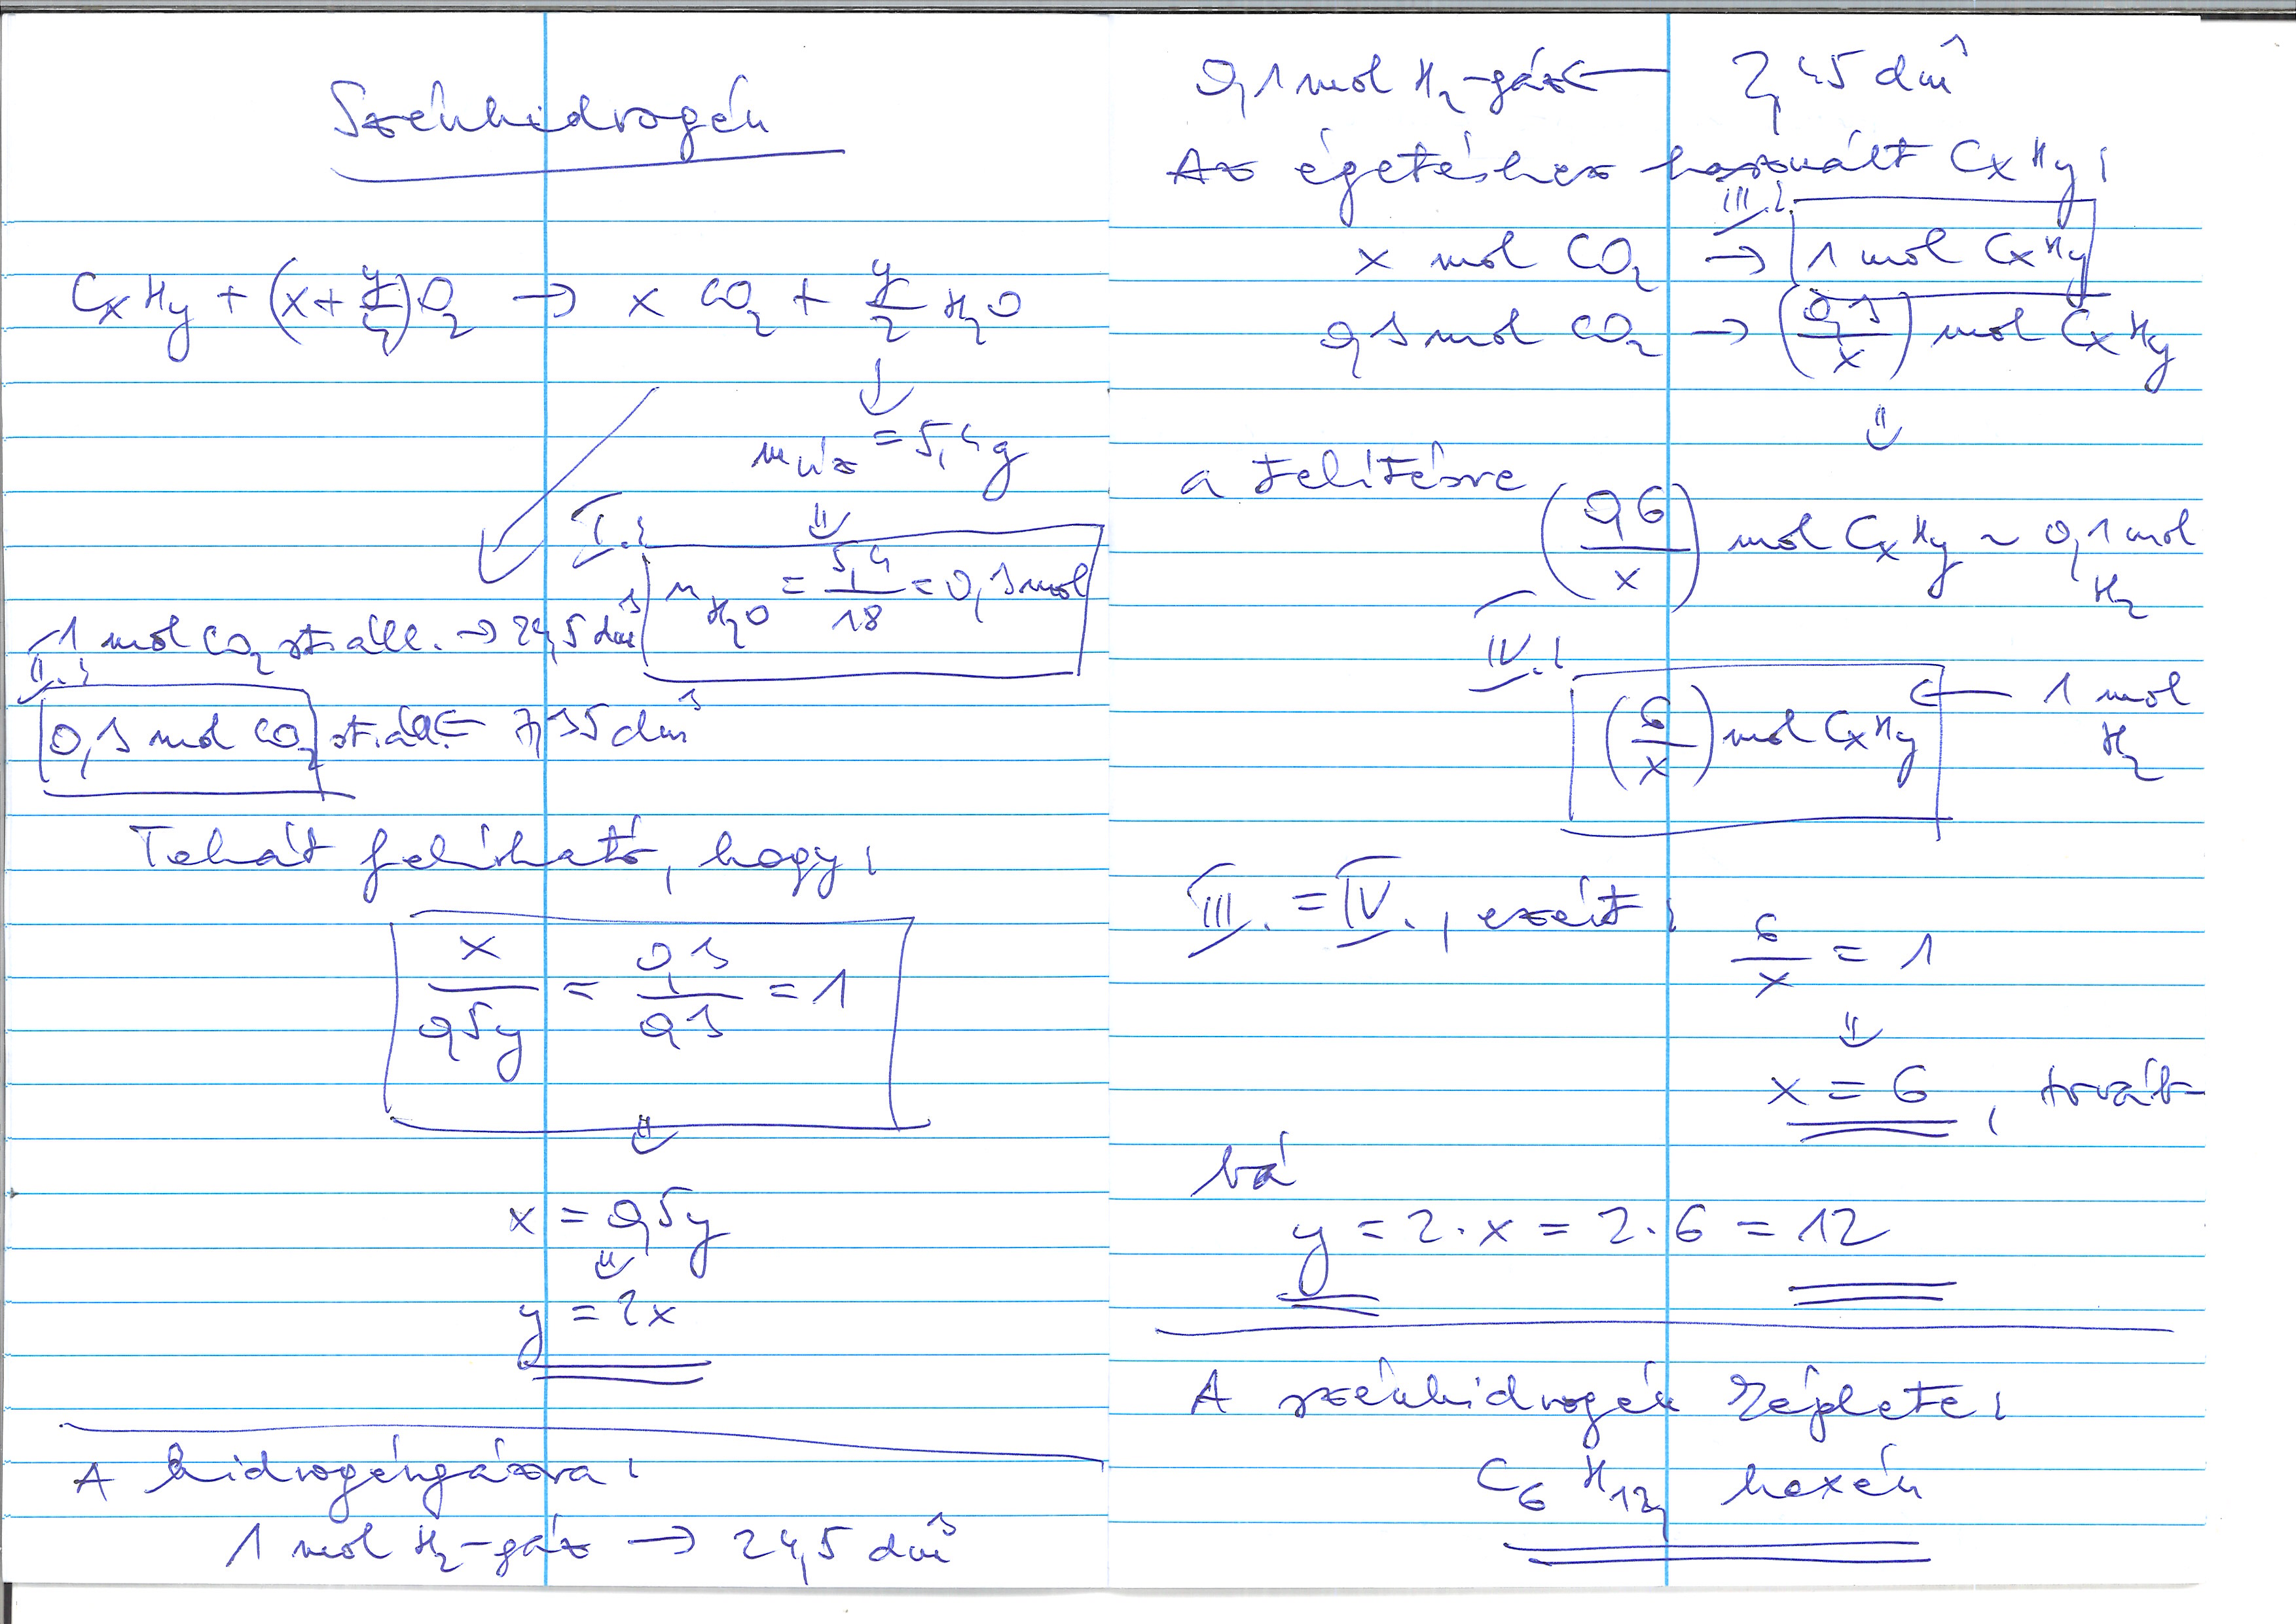 Szénhidrogén
CxHy + (x + y/4) O2 → x CO2 + y/2 H2O
↓
m víz = 5,4 g
⇓
I.: n H2O = 5,4/18 = 0,3 mol
1 mol CO2 st. áll. → 24,5 dm³
II.: 0,3 mol CO2 st. áll. ← 7,35 dm³
Tehát felírható, hogy:
x/0,5y = 0,3/0,3 = 1
⇓
x = 0,5y
⇓
y = 2x
A hidrogéngázra:
1 mol H2-gáz → 24,5 dm³
0,1 mol H2-gáz ← 2,45 dm³
Az égetéshez használt CxHy:
III.:
x mol CO2 → 1 mol CxHy
0,3 mol CO2 → (0,3/x) mol CxHy
⇓
a telítésre
(0,6/x) mol CxHy ~ 0,1 mol H2
IV.:
(6/x) mol CxHy ← 1 mol H2
III. = IV., ezért:
6/x = 1
⇓
x = 6, továb-
bá
y = 2 · x = 2 · 6 = 12
A szénhidrogén képlete:
C6H12, hexén